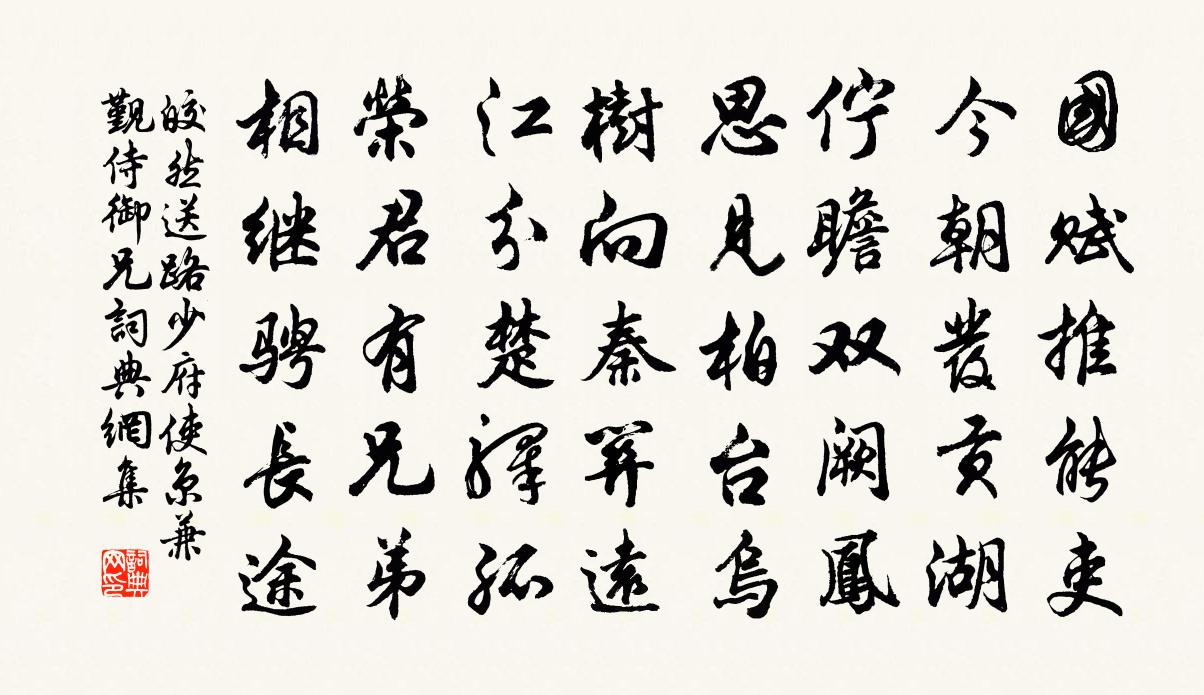 國賦推能吏
今朝發貢湖
佇瞻双闕鳳
思見柏台烏
樹向秦関遠
江分楚驛孤
榮君有兄弟
相継騁長途
皎然送路少府使京兼
覲侍御兄詞典網集
詞典网印